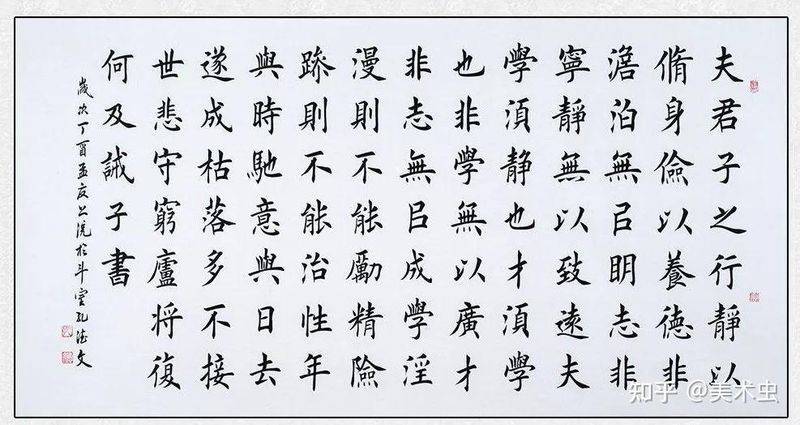 夫君子之行靜以
脩身儉以養德非
澹泊無㠯眀志非
寧靜無以致遠夫
學須靜也才須學
也非學無以廣才
非志無㠯成學淫
漫則不能勵精險
躁則不能治性年
與時馳意與日去
遂成枯落多不接
世悲守窮廬將復
何及誡子書
歲次丁酉孟夏上浣於斗室孔德文
知乎 @美术虫